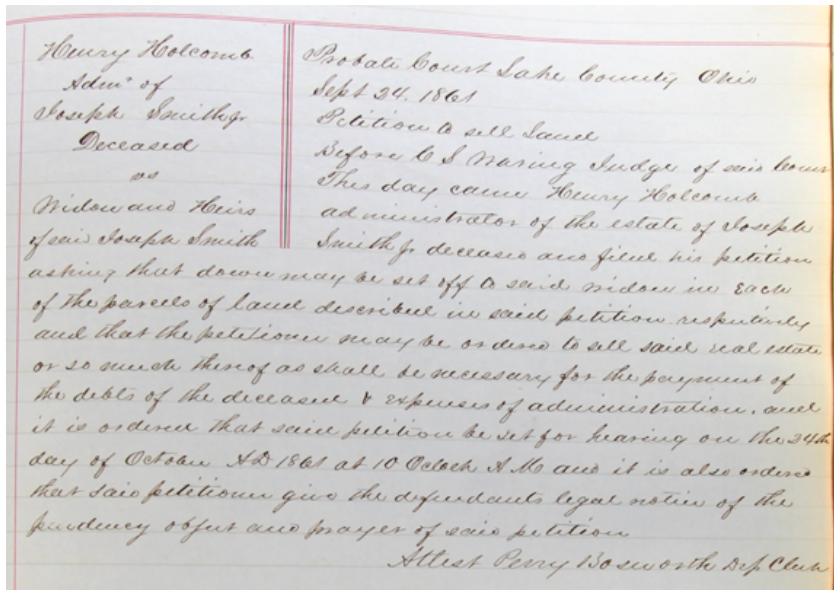 Henry Holcomb
Admr of
Joseph Smith jr
Deceased
vs
Widow and Heirs
of said Joseph Smith
Probate Court Lake County Ohio
Sept 24. 1861
Petition to sell Land
Before C S Waring Judge of said Court
This day came Henry Holcomb
administrator of the estate of Joseph
Smith jr deceased and filed his petition
asking that dower may be set off to said widow in each
of the parcels of land described in said petition respectively
and that the petitioner may be ordered to sell said real estate
or so much thereof as shall be necessary for the payment of
the debts of the deceased & expenses of administration. and
it is ordered that said petition be set for hearing on the 24th
day of October AD 1861 at 10 Oclock A.M and it is also ordered
that said petitioner give the defendants legal notice of the
pendency object and prayer of said petition
Attest Perry Bosworth Dep Clerk